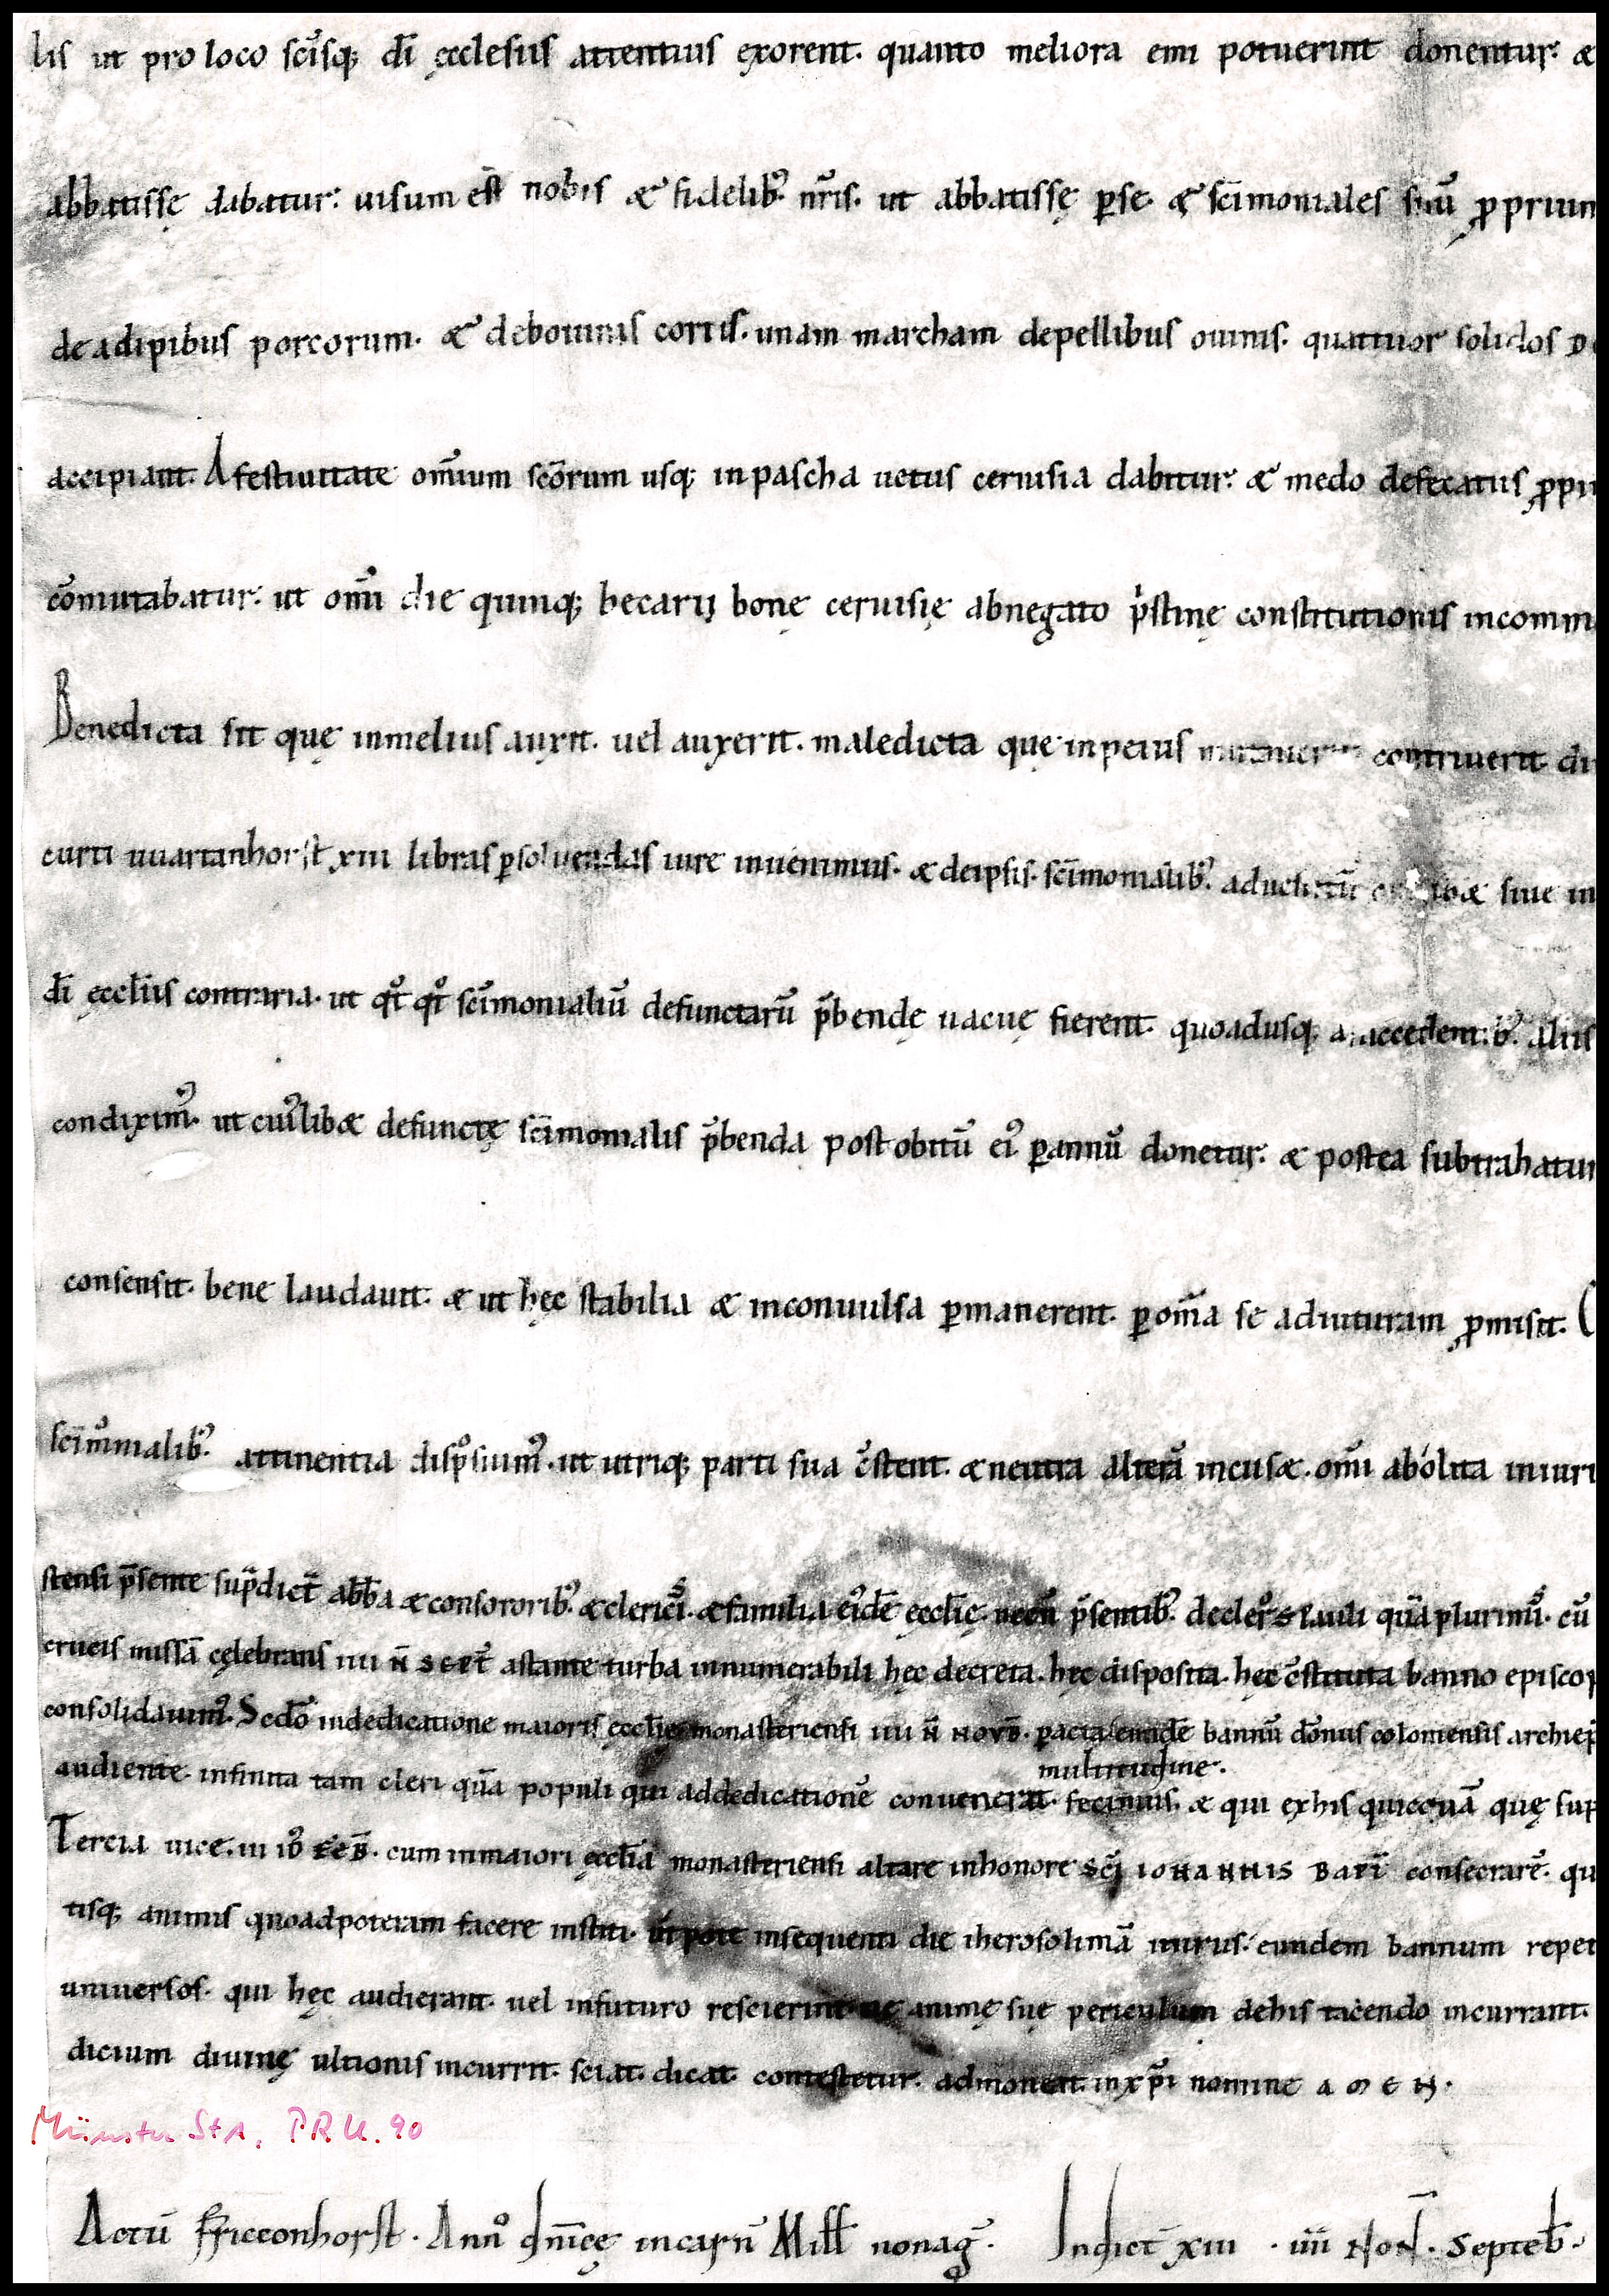 lis ut pro loco scīsq; dī ęcclesiis attentius exorent. quanto meliora emi potuerint donentur. &
abbatissę dabatur. uisum est nobis & fidelib; nr̄is. ut abbatissę p̱ se. & scīmoniales suū ꝓprium
de adipibus porcorum. & de bouinis cortis. unam marcham de pellibus ouinis. quattuor solidos D
accipiant. A festiuitate om̄ium scōrum usq; in pascha uetus ceruisia dabitur. & medo defecatus ꝓpi
cōmutabatur. ut om̄i die quinq; becarij bonę ceruisię abnegato p̍stinę constitutionis incomm
Benedicta sit quę in melius auxit. uel auxerit. maledicta que in peius contriuerit di
curti uuartanhorst xiii libras p̱soluendas iure inuenimus. & de ipsis. scīmonialib; siue in
dī ęcclīis contraria. ut qt̄ qt̄ scīmonialiū defunctarū p̄bendę uacuę fierent. quoadusq; aliis
condixim⁹. ut cui⁹lib& defunctę scīmonialis p̄benda post obitū ei⁹ p̱ annū donetur. & postea subtrahatur
consensit. bene laudauit. & ut hęc stabilia & inconuulsa p̱manerent. p̱ om̄ia se adiuturam ꝓmisit. C
scīmonialib; attinentia disposuim⁹. ut utriq; parti sua c̄stent. & neutra alterā incus&. om̄i abolita iniuri
stensi p̄sente sup̄dict̄ abb̄a & consororib; & clerici̊s. & familia ei⁹dē ęcclīę. necn̄ p̄sentib; de clero & laici quā plurimis̊. cū
crucis missā cęlebrans iiii N̄ SEPT̄ astante turba innumerabili hęc decreta. hęc disposita. hęc c̄stituta banno episcop
consolidauim⁹. Sedo in dedicatione maioris ęcclīę monasteriensi iiii N̄ NOVB̄. p̱acta eundē bannū dōnus coloniensis archiep̄
multitudine.
audiente infinita tam cleri quā populi qui ad dedicationē conuenerat. fecimus, & qui ex his quicquā quę sup
Tercia uice. iii id⁹ FEB̄. cum in maiori ęcclīa monasteriensi altare in honore SC̄I IOHANNIS BAPT̄ consecrarē. qu
tisq; animis quoad poteram facere institi. ut pote in sequenti die iherosolimā iturus. eundem bannum repet
uniuersos. qui hęc audierant. uel in futuro rescierint ne animę suę periculum de his tacendo incurrant.
dicium diuinę ultionis incurrit. sciat. dicat. contestetur. admoneat. in xp̄i nomine A M E N.
Münster StA. P.R.U. 90
Actū ffricconhorst. Anno dn̄icę incarn̄ Mill̄ nonag̅. Indict̄ xiii . iiii NON̄. Septeb̄.